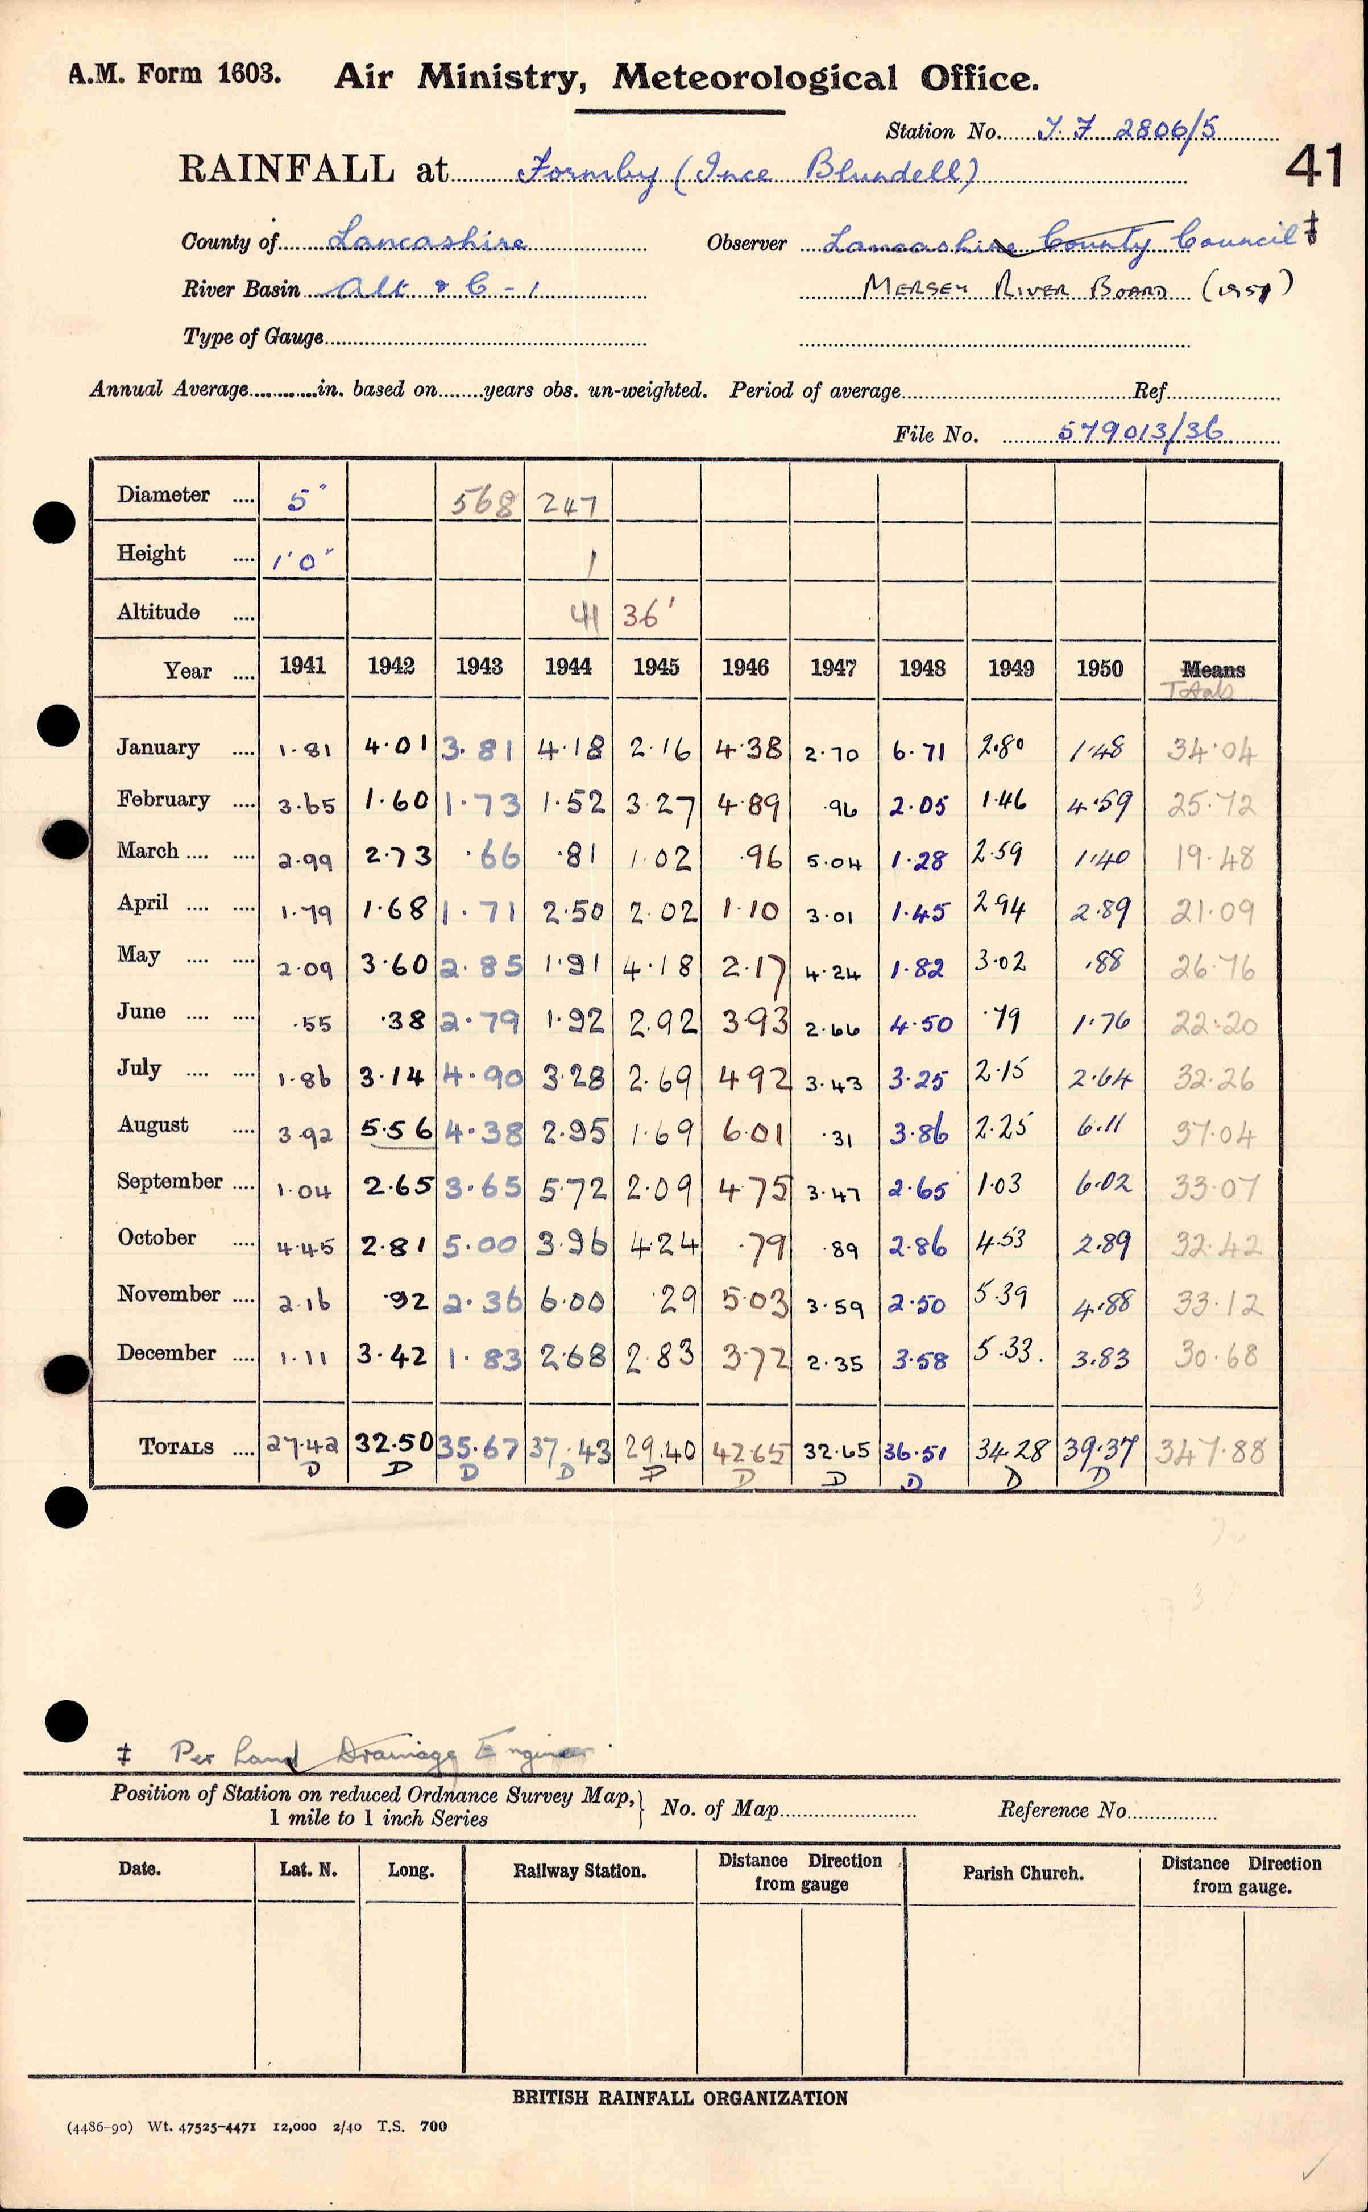 A.M. Form 1603. Air Ministry, Meteorological Office.
Station No. 2806/5
41
RAINFALL at Formby (Ince Blundell)
County of Lancashire Observer Lancashire County Council ‡
River Basin Alt & C - 1 MERSEY RIVER BOARD (1951)
Type of Gauge
Annual Average in. based on years obs. un-weighted. Period of average Ref.
File No. 579013/36
Diameter .... 5" 568 247
Height .... 1'0" 1
Altitude .... 41 36'
Year .... 1941 1942 1943 1944 1945 1946 1947 1948 1949 1950 Means
Totals
January .... 1.81 4.01 3.81 4.18 2.16 4.38 2.70 6.71 2.80 1.48 34.04
February .... 3.65 1.60 1.73 1.52 3.27 4.89 .96 2.05 1.46 4.59 25.72
March .... .... 2.99 2.73 .66 .81 1.02 .96 5.04 1.28 2.59 1.40 19.48
April .... .... 1.79 1.68 1.71 2.50 2.02 1.10 3.01 1.45 2.94 2.89 21.09
May .... .... 2.09 3.60 2.85 1.91 4.18 2.17 4.24 1.82 3.02 .88 26.76
June .... .... .55 .38 2.79 1.92 2.92 3.93 2.66 4.50 .79 1.76 22.20
July .... .... 1.86 3.14 4.90 3.28 2.69 4.92 3.43 3.25 2.15 2.64 32.26
August .... 3.92 5.56 4.38 2.95 1.69 6.01 .31 3.86 2.25 6.11 37.04
September .... 1.04 2.65 3.65 5.72 2.09 4.75 3.47 2.65 1.03 6.02 33.07
October .... 4.45 2.81 5.00 3.96 4.24 .79 .89 2.86 4.53 2.89 32.42
November .... 2.16 .92 2.36 6.00 .29 5.03 3.59 2.50 5.39 4.88 33.12
December .... 1.11 3.42 1.83 2.68 2.83 3.72 2.35 3.58 5.33. 3.83 30.68
TOTALS .... 27.42 32.50 35.67 37.43 29.40 42.65 32.65 36.51 34.28 39.37 347.88
D D D D D D D D D D
‡ Per Land Drainage Engineer.
Position of Station on reduced Ordnance Survey Map, } No. of Map Reference No.
1 mile to 1 inch Series
Date. Lat. N. Long. Railway Station. Distance Direction from gauge Parish Church. Distance Direction from gauge.
BRITISH RAINFALL ORGANIZATION
(4486-90) Wt. 47525-4471 12,000 2/40 T.S. 700